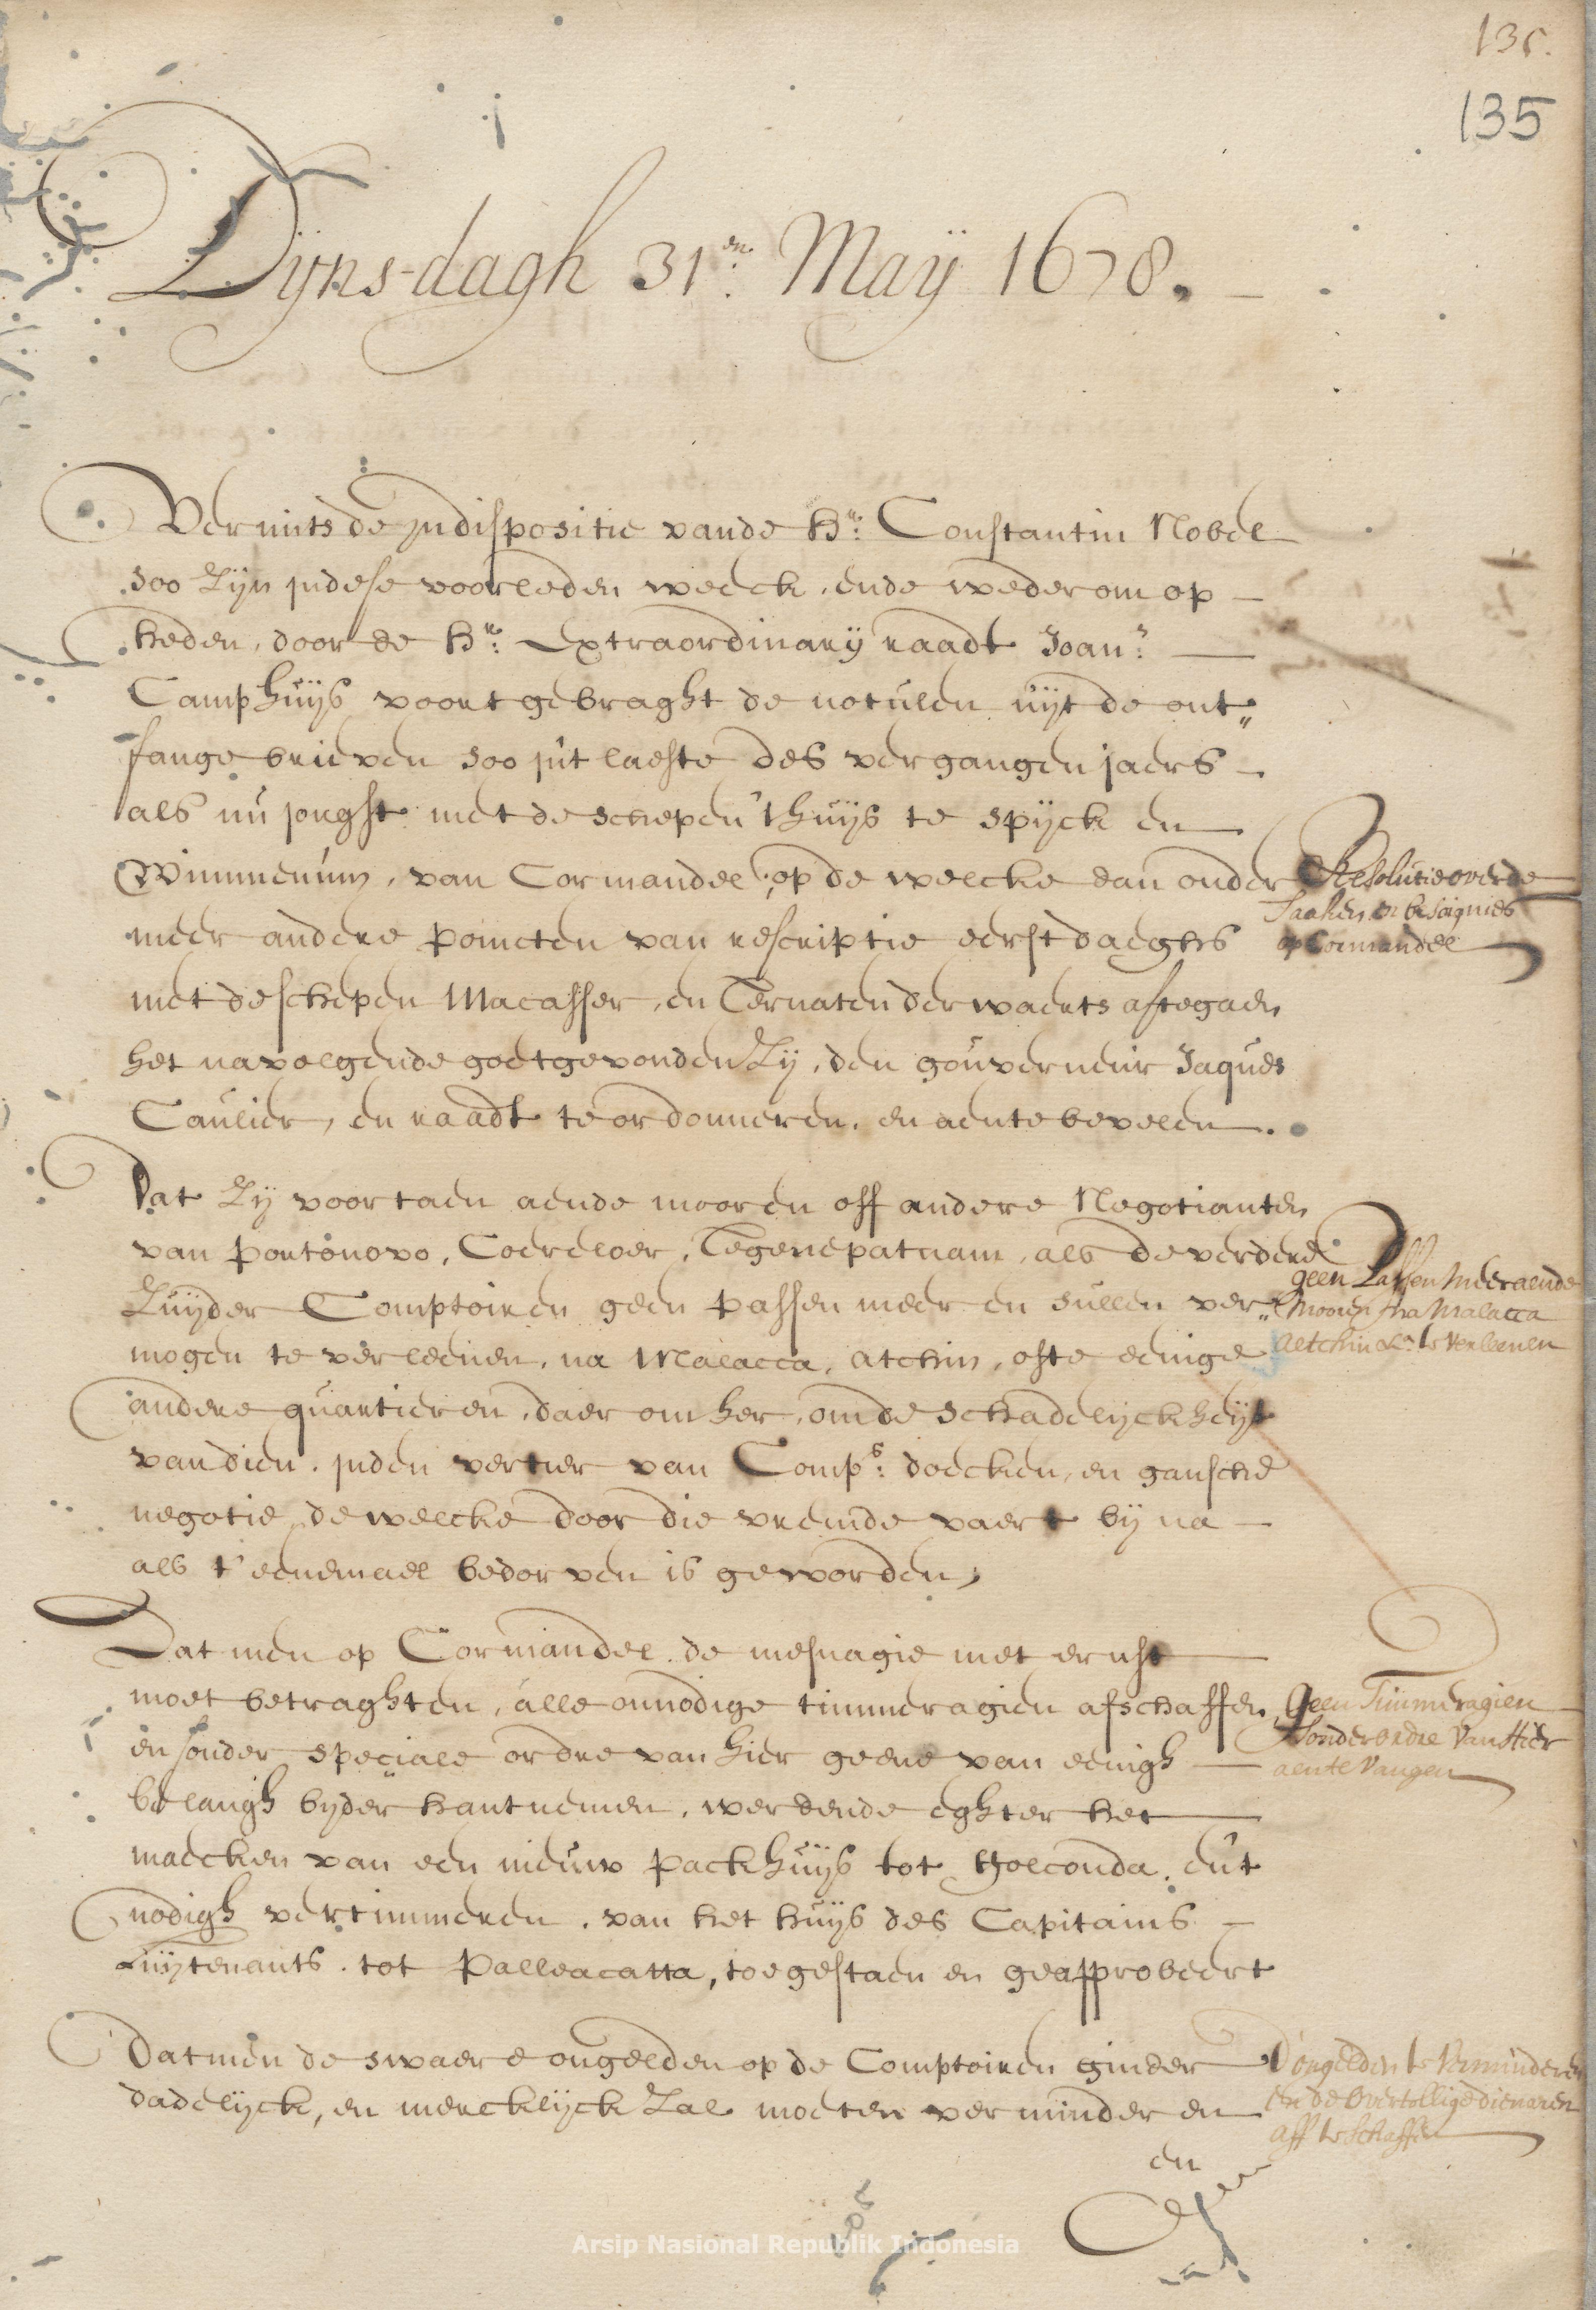 135.
135
Dijns-dagh 31en. Maÿ 1678.
Vermits de indispositie vande Hr: Constantin Nobel
soo zijn indese voorleden weeck, ende wederom op
heden, door de Hr: Extraordinarÿ raadt Joans:
Camphuÿs voortgebraght de notulen uÿt de ont„
fange brieven soo int laeste des vergangen jaers
als nu jonght met de schepen 't huÿs te Spÿck en
Wimmenum, van Cormandel, op de welcke dan onder
meer andere poincten van rescriptie eerstdaeghs
met de schepen Macasser, en Ternaten derwaerts aftegaen
het navolgende goetgevonden zÿ, den gouverneur Jaques
Caulier, en raadt te ordonneren, en aentebevelen.
Resolutie over de
saaken en besoignies
op Cormandel
Dat zÿ voortaen aende mooren off andere Negotianten
van Portonovo, Coedeloer, Tegenepatnam, als de verdere
Zuÿder Comptoiren geen passen meer en sullen ver„
mogen te verleenen, na Malacca, Atchin, ofte eenige
andere quartieren, daer omher, om de schadelijckheÿt
van dien, inden vertier van Comps: doecken, en gansche
negotie, de welcke door die vremde vaert bÿ na
als t' eenemael bedorven is geworden,
geen Passen meer aende
mooren na Malacca
Aetchin &a. te verleenen
Dat men op Cormandel de mesnagie met ernst
moet betraghten, alle onnodige timmeragien afschaffen,
en sonder speciale ordre van hier geene van eenigh
belangh bÿder hant nemen, werdende eghter het
maecken van een nieuw packhuÿs tot Golconda, en't
nodigh vertimmeren, van het huÿs des Capitains
Luÿtenants tot Palleacatta, toegestaen en geapprobeert
geen Timmeragien
sonder ordre van Hier
aente vangen
Dat men de swaere ongelden op de Comptoiren ginder
dadelijck, en mercklijck zal moeten verminderen
D'ongelden te verminderen
en de overtollige dienaren
aff te schaffen
en
Arsip Nasional Republik Indonesia